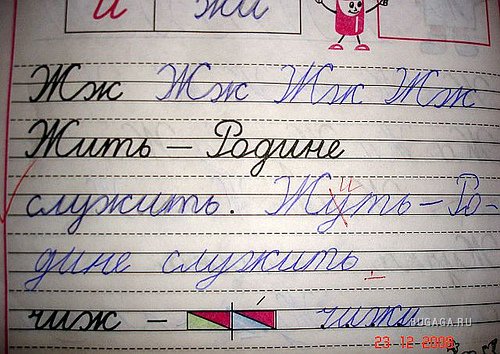 и жи
Жж Жж Жж Жж
Жить – Родине
служить. Жуть – Ро-
дине служить
чиж – чижи
BUGAGA.RU
23 12 2008